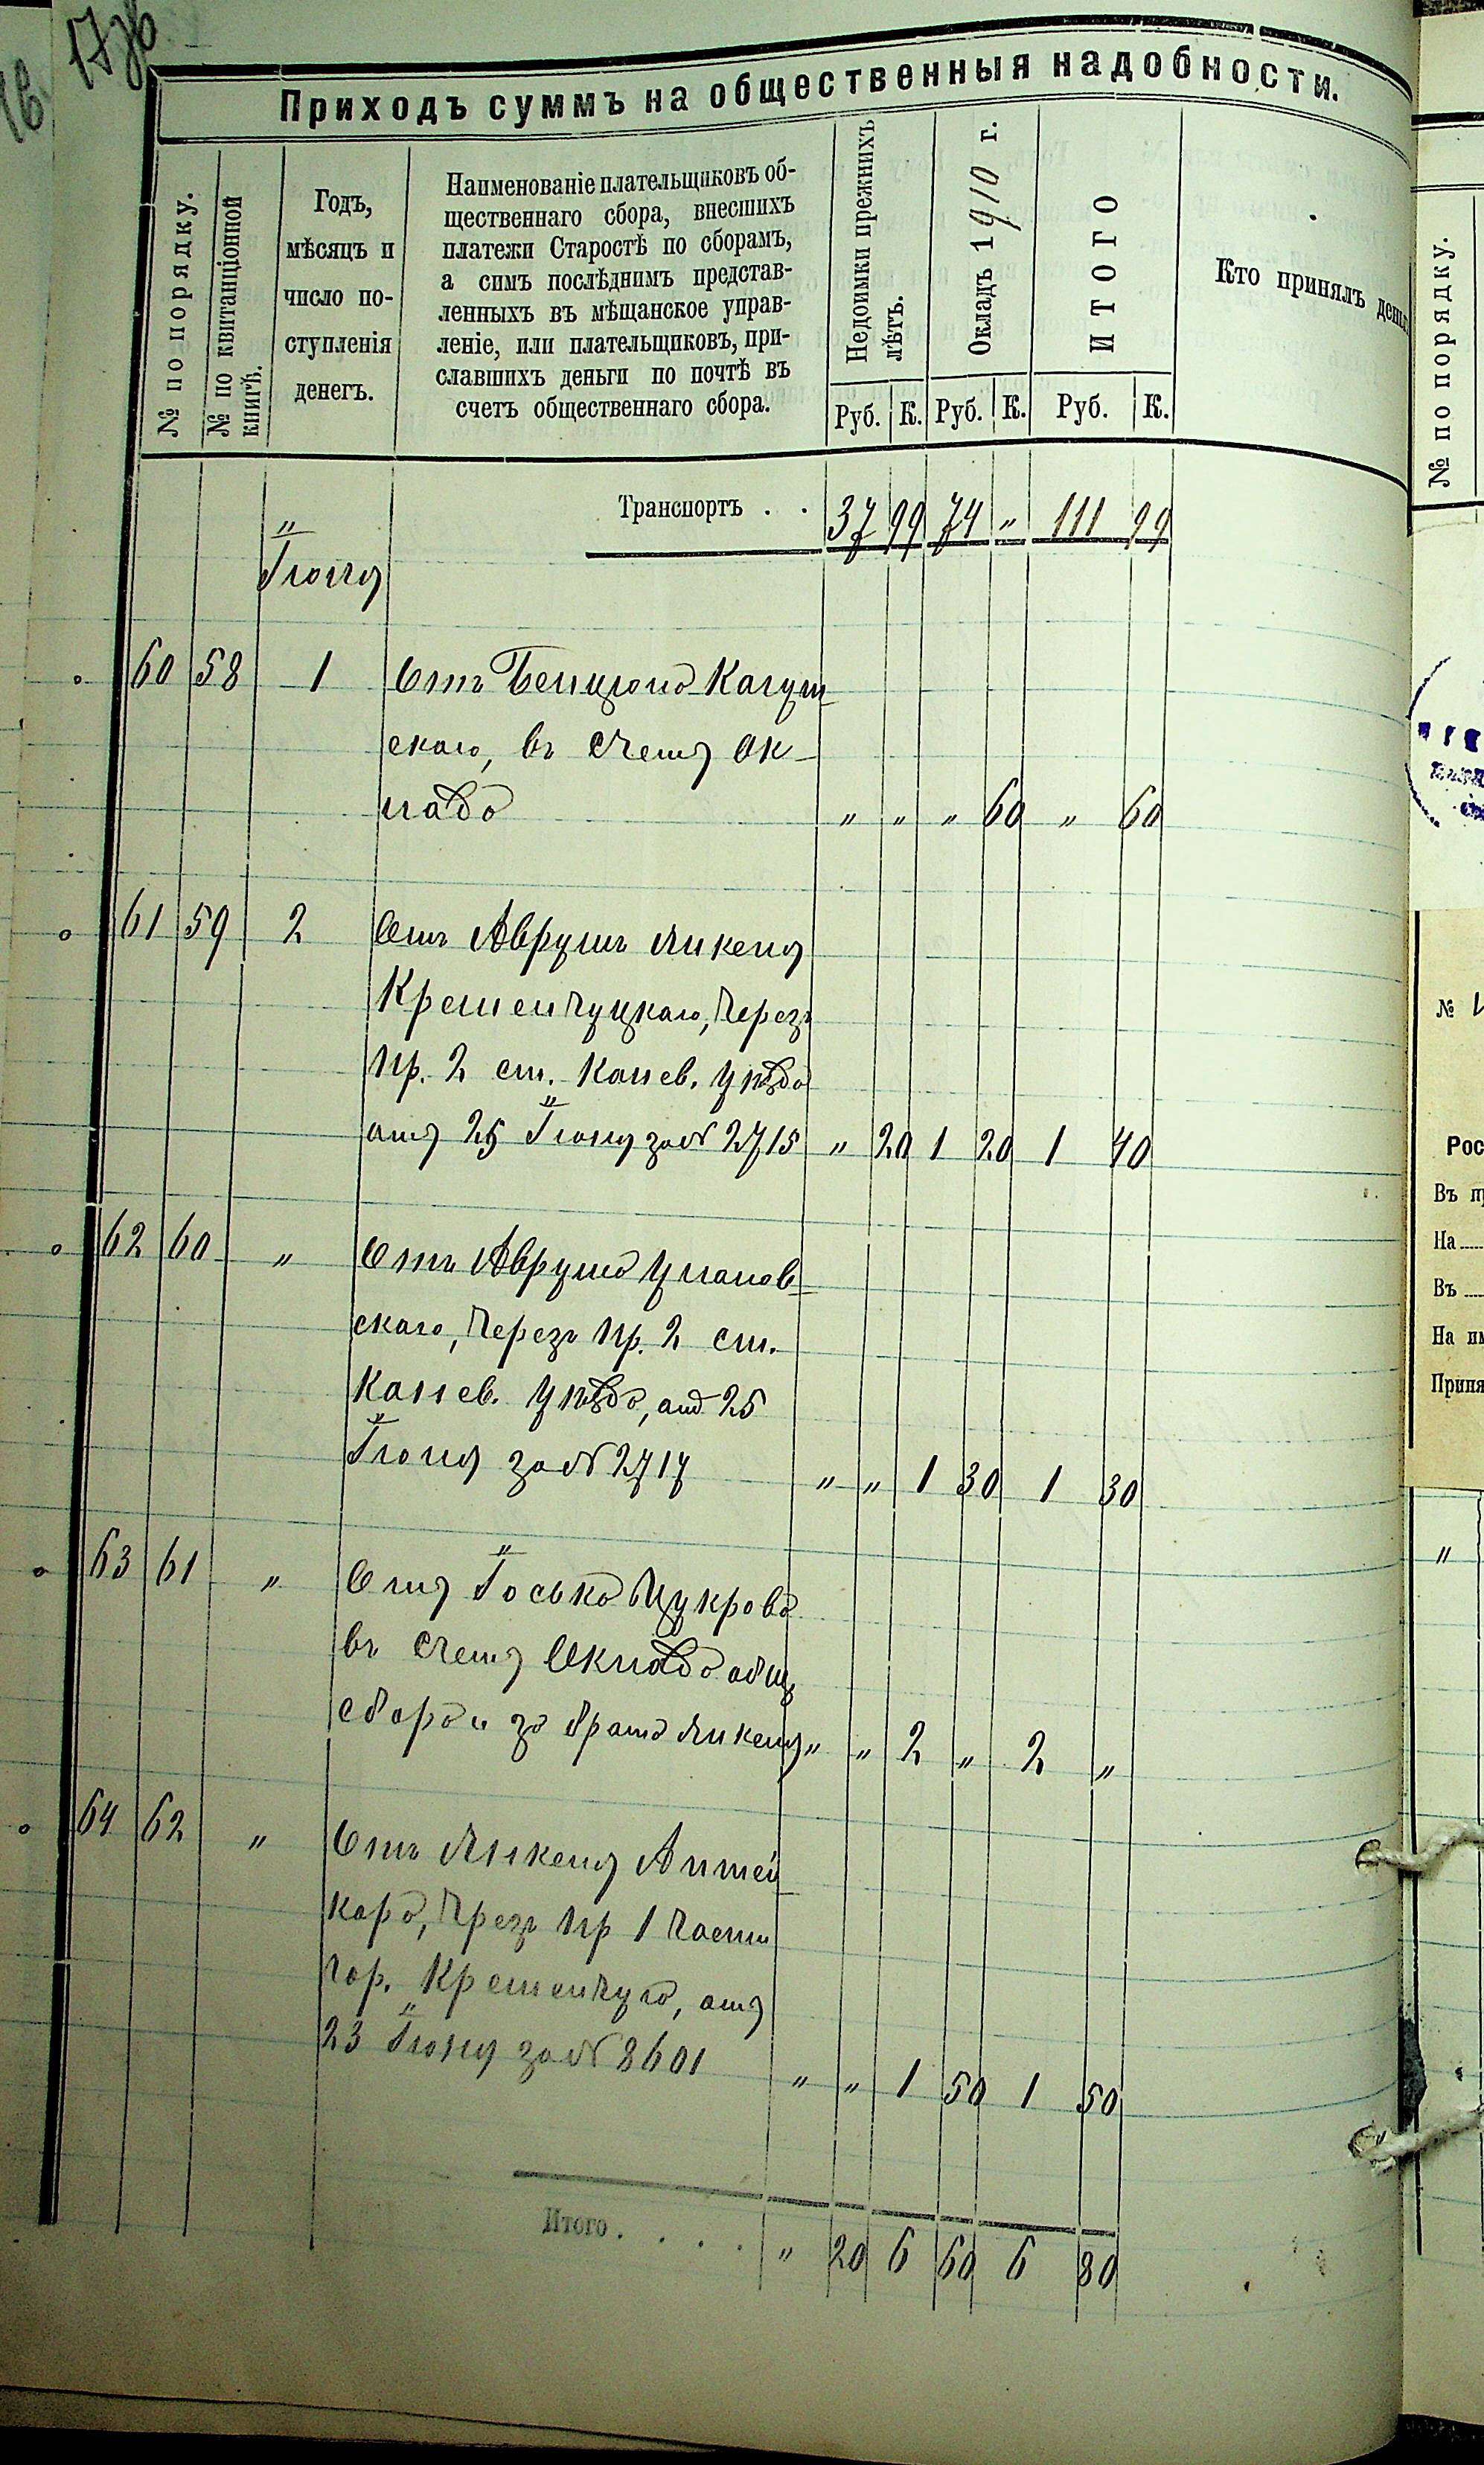 17 об
Приходъ суммъ на общественныя надобности.
№ по порядку.
№ по квитанціонной книгѣ.
Годъ,
мѣсяцъ и
число по-
ступленія
денегъ.
Наименованіе плательщиковъ об-
щественнаго сбора, внесшихъ
платежи Старостѣ по сборамъ,
а симъ послѣднимъ представ-
ленныхъ въ мѣщанское управ-
леніе, или плательщиковъ, при-
славшихъ деньги по почтѣ въ
счетъ общественнаго сбора.
Недоимки прежнихъ лѣтъ.
Окладъ 1910 г.
ИТОГО
Кто принялъ
Руб. К. Руб. К. Руб. К.
Транспортъ . . 37 99 74 " 111 99
Іюля
60 58 1 Отъ Бенціона
скаго, въ счетъ ок-
лада " " " 60 " 60
61 59 2 Отъ Аврумъ Янкеля
Кременчуцкаго, черезъ
Пр. 2 ст. Канев. уѣзда
отъ 25 Іюня за № 2715 " 20 1 20 1 40
62 60 " Отъ Аврума Уланов-
скаго, черезъ Пр. 2 ст.
Канев. уѣзда, отъ 25
Іюня за № 2717 " " 1 30 1 30
63 61 " Отъ Іоська Цукрова
въ счетъ Оклада общ.
сбора и за брата Янкеля " " 2 " 2 "
64 62 " Отъ Янкеля Аптей-
кара, чрезъ Пр 1 части
гор. Кременчуга, отъ
23 Іюня за № 8601 " " 1 50 1 50
Итого . . . . " 20 6 60 6 80
№ по порядку.
№
Рос
Въ
На
Въ
На
"